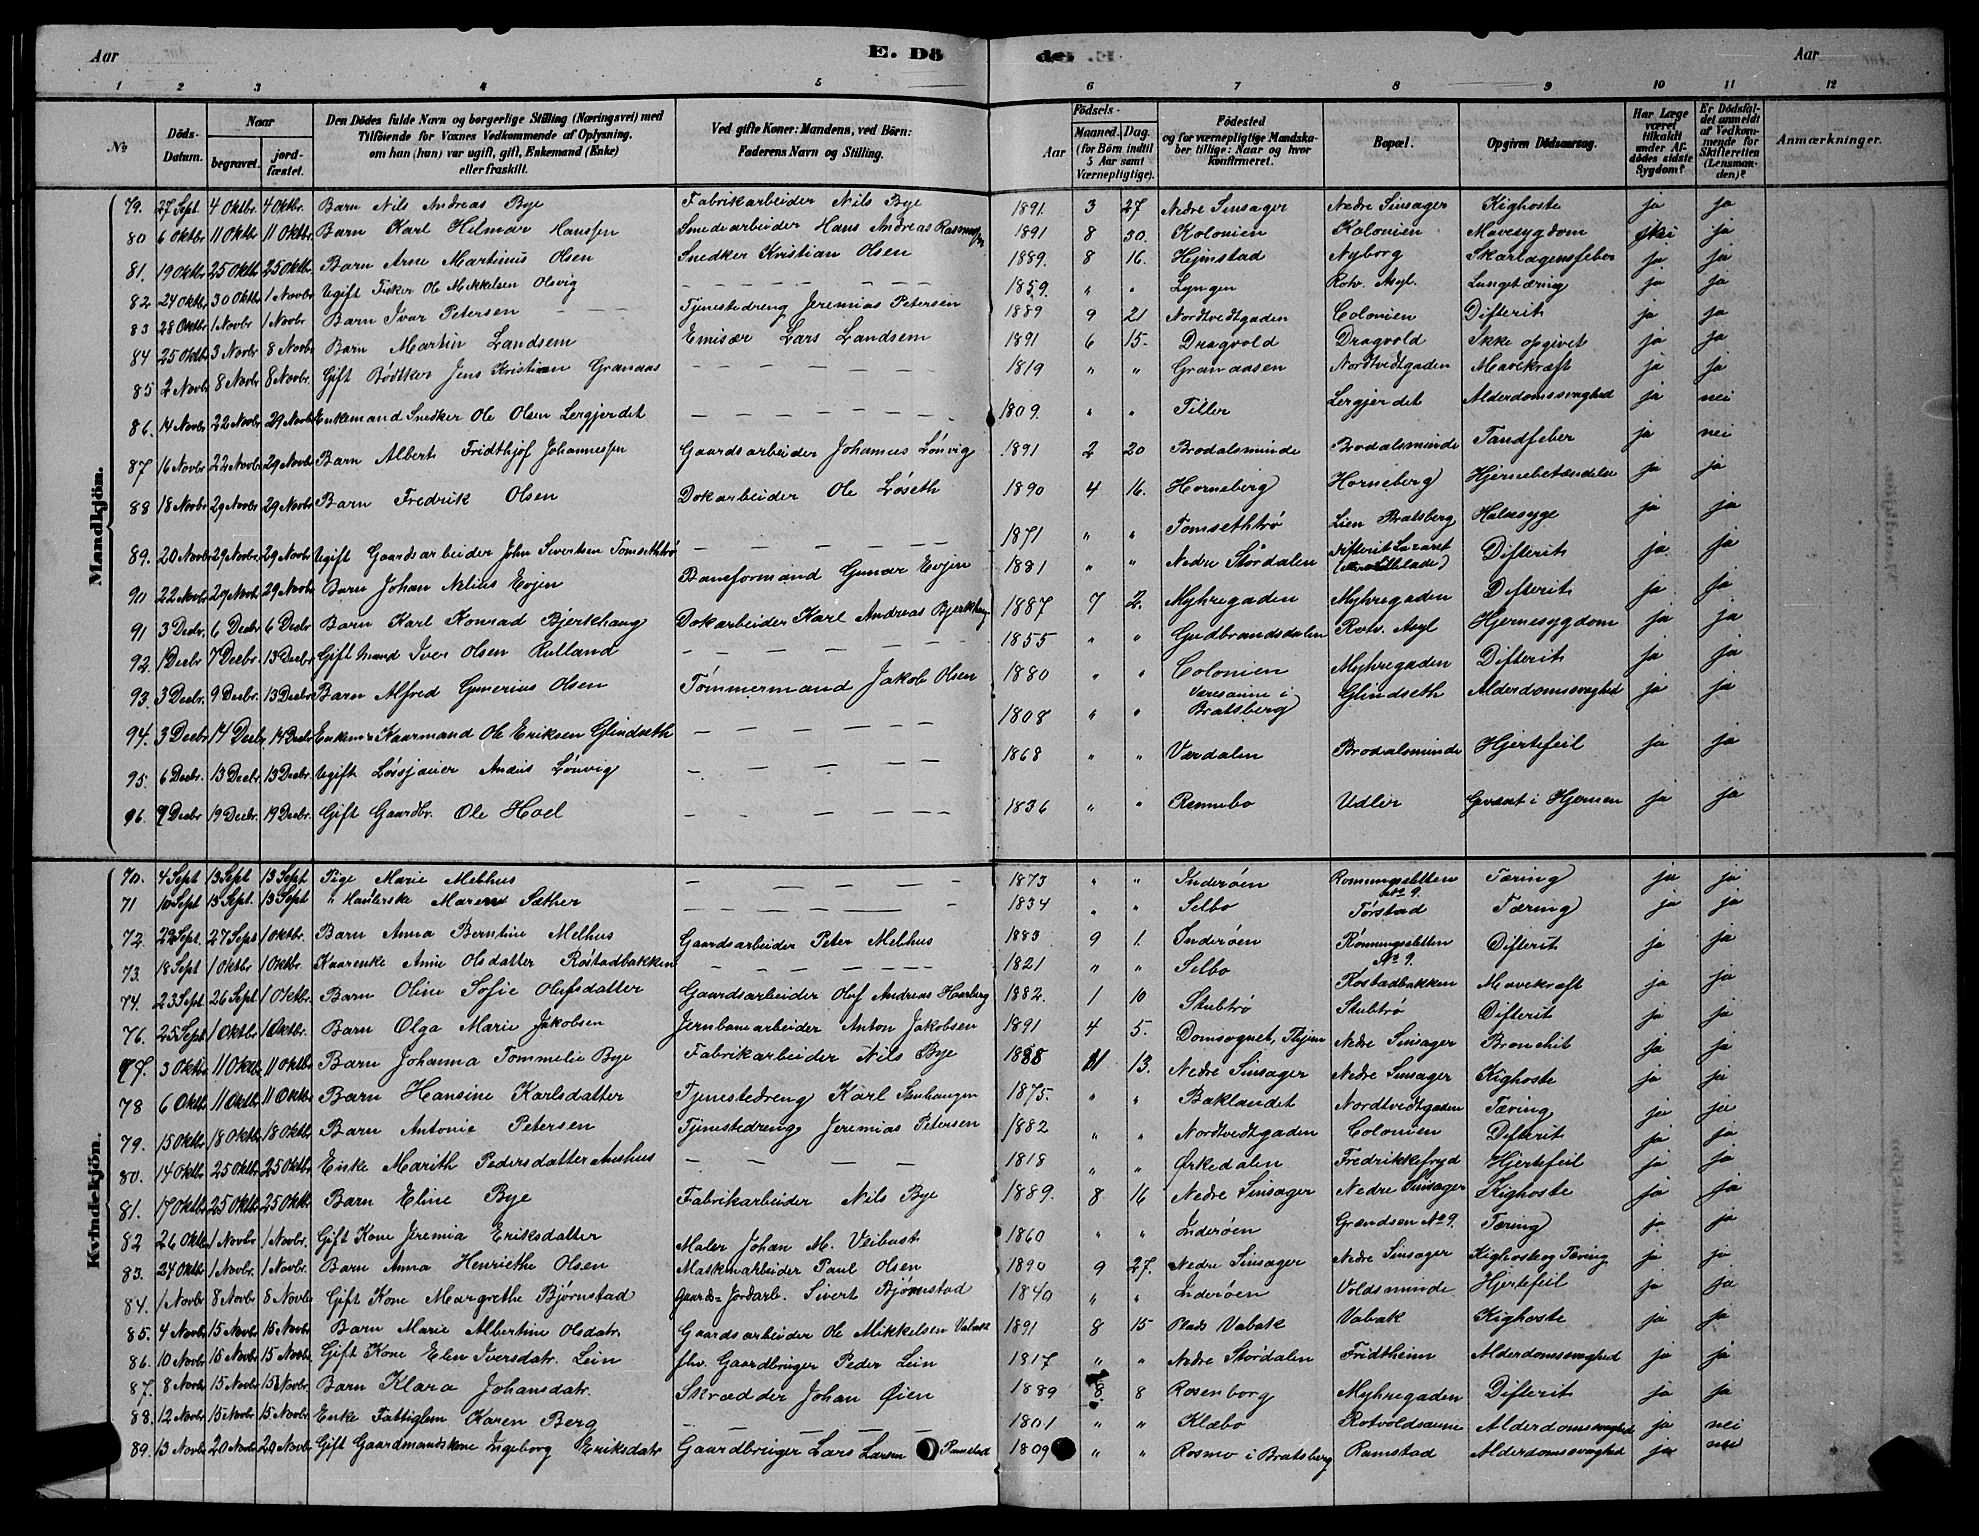 Aar E. Dö de. Aar
1 2 3 4 5 6 7 8 9 10 11 12
No Döds-Datum. Naar begravet. jord-fæstet. Den Dödes fulde Navn og borgerlige Stilling (Næringsvei) med Tilföiende for Voxnes Vedkommende af Oplysning, om han (hun) var ugift, gift, Enkemand (Enke) eller fraskilt. Ved gifte Koner: Mandens, ved Börn: Faderens Navn og Stilling. Födsels- Aar Maaned. Dag. (for Börn indtil 5 Aar samt Værnepligtige). Födested og for værnepligtige Mandskaber tillige: Naar og hvor Konfirmeret. Bopæl. Opgiven Dödsaarsag. Har Læge været tilkaldt under Afdödes sidste Sygdom? Er Dödsfaldet anmeldt af Vedkommende for Skifteretten (Lensmanden)? Anmærkninger.
Mandkjön.
79. 27 Sept. 4 Oktbr. 4 Oktbr. Barn Nils Andreas Bye Fabrikarbeider Nils Bye 1891. 3 27 Nedre Sinsager Nedre Sinsager Kighoste ja ja
80 6 Oktbr 11 Oktb 11 Oktbr. Barn Karl Hilmar Hanssen Smedearbeider Hans Andreas Rasmussen 1891 8 30. Kolonien Kolonien Mavesygdom ja
81. 19 Oktbr 25 Oktb 25 Oktbr. Barn Arne Martinus Olsen Snedker Kristian Olsen 1889. 8 16. Hjmstad Nyborg Skarlagensfeber ja ja
82. 24 Oktbr 30 Oktbr 1 Novbr Ugift Fisker Ole Mekkelsen Olsvig — 1859. " " Lyngen Rotv. Asyl. Lungetæring ja ja
83 28 Oktbr 1 Novbr 1 Novbr Barn Ivar Petersen Tjenestedreng Jeremias Petersen 1889 9 21 Nordtvedtgaden Colonien Difterit ja ja
84 25 Oktbr 3 Novbr 8 Novbr. Barn Martin Landsem Emisær Lars Landsem 1891 6 15- Dragvold Dragvold Ikke opgivet ja ja
85. 2 Novbr 8 Novbr 8 Novbr. Gift Bødtker Jens Kristian Granaas — 1819 " " Granaasen Nordtvedtgaden Mavekræft ja ja
86. 14 Novbr 22 Novbr 29 Novbr Enkemand Snedker Ole Olsen Lergjerdet — 1809. " " Tiller Lergjerdet Alderdomssvaghed ja nei
87 16 Novbr 22 Novbr 29 Novbr Barn Albert Fridthjof Johannessen Gaardsarbeider Johannes Lønvig 1891 2 20 Brodalsminde Brodalsminde Tandfeber ja nei
88 18 Novbr 29 Novbr 29 Novbr Barn Fredrik Olsen Dokarbeider Ole Løseth 1890 4 16. Horneberg Horneberg Hjernebetændelse ja ja
89. 20 Novbr 29 Novbr 29 Novbr Ugift Gaardsarbeider John Sivertsen Tomsethtrø — 1871 " " Tomsethtrø Lien Bratsberg Halssyge ja ja
90 22 Novbr 29 Novbr 29 Novbr Barn Johan Nelius Evjen Baneformand Gunar Evjen 1881 " " Nedre Stördalen Difterit Lazaret Difterit ja ja
91 3 Decbr. 6 Decbr 6 Decbr Barn Karl Konrad Bjerkhaug Dokarbeider Karl Andreas Bjerkhaug 1887 7 2. Myhregaden Myhregaden Difterit ja ja
92. 1 Decbr 7 Decbr 13 Decbr Gift Mand Iver Olsen Rolland — 1855 " " Gudbrandsdalen Rotv. Asyl Hjernesygdom ja ja
93. 3 Decbr. 9 Decbr. 13 Decbr Barn Alfred Gunerius Olsen Tömmermand Jakob Olsen 1880 " " Colonien Myhregaden Difterit ja ja
94. 3 Decbr 14 Decbr 14 Decbr Enkem. Kaarmand Ole Eriksen Glindseth — 1808 " " Bratsberg Glindseth Alderdomssvaghed ja ja
95. 6 Decbr. 13 Decbr 13 Decbr. Ugift Løssjauer Andus Lønvig — 1868 " " Værdalen Brodalsminde Hjertefeil ja ja
96. 9 Decbr 19 Decbr. 19 Decbr. Gift Gaardbr. Ole Hoel — 1836 " " Rennebo Udler Gevæxt i Hjernen ja ja
Kvindekjön.
70. 4 Sept 13 Sept 13 Sept Pige Marie Melhus — 1873 " " Inderøen Rønningsletten No 9. Tæring ja ja
71 10 Sept 13 Sept. 13 Sept " Maren Sæther — 1834 " " Selbo Torstad Tæring ja ja
72. 22 Sept. 27 Sept 1 Oktbr. Barn Anna Berntine Melhus Gaardsarbeider Peter Melhus 1883 9 1. Inderøen Rønningsletten No 9. Difterit ja ja
73. 18 Sept 1 Oktbr 1 Oktbr. Kaarenke Anne Olsdatter Røstadbakken — 1821 " " Selbo Røstadbakken Mavekræft ja ja
74. 23 Sept 26 Sept 1 Oktbr. Barn Oline Sofie Olufsdatter Gaardsarbeider Oluf Andreas Haarberg 1882. 1 10 Stubtrø Stubtrø Difterit ja ja
76. 25 Sept 1 Oktbr 1 Oktbr. Barn Olga Marie Jakobsen Jernbanearbeider Anton Jakobsen 1891 4 5. Domsognet, Thjem Nedre Sinsager Bronchit ja ja
77. 3 Oktbr 11 Oktbr 11 Oktbr. Barn Johanna Tommelie Bye Fabrikarbeider Nils Bye 1888 11 13. Nedre Sinsager Nedre Sinsager Kighoste ja ja
78 6 Oktbr 11 Oktbr 11 Oktbr Barn Hansine Karlsdatter Tjenestedreng Karl Stenhaugen 1875. " " Baklandet Nordtvedtgaden Tæring ja ja
79. 15 Oktbr 18 Oktbr 18 Oktbr. Barn Antonie Petersen Tjenestedreng Jeremias Petersen 1882 " " Nordtvedtgaden Colonien Difterit ja ja
80. 14 Oktbr 25 Oktbr 25 Oktbr Enke Marith Pedersdatter Aushus — 1818 " " Ørkedalen Fredrikkefryd Hjertefeil ja ja
81. 17 Oktbr 25 Oktbr 25 Oktbr. Barn Eline Bye Fabrikarbeider Nils Bye 1889. 8 16 Nedre Sinsager Nedre Sinsager Kighoste ja ja
82 26 Oktbr 1 Novbr. 1 Novbr. Gift Kone Jeremia Eriksdatter Maler Johan M. Veibust 1860 " " Inderøen Grændsen No 9. Tæring ja ja
83. 24 Oktbr 1 Novbr. 1 Novbr. Barn Anna Henriethe Olsen Maskinarbeider Paul Olsen 1890 9 27. Nedre Sinsager Nedre Sinsager Kighoste og Tæring ja ja
84. 1 Novbr 8 Novbr 8 Novbr Gift Kone Margrethe Bjørnstad Gaards= Jordarb. Sivert Bjørnstad 1840 " " Inderøen Voldsminde Hjertefeil ja ja
85. 4 Novbr 15 Novbr 15 Novbr Barn Marie Albertine Olsdatr. Gaardsarbeider Ole Mikkelsen Vabak 1891 8 15 Plads Vabak Vabak Kighoste ja ja
86. 10 Novbr 15 Novbr 15 Novbr. Gift Kone Elen Iversdatr. Lein fhv. Gaardbruger Peder Lein 1817 " " Nedre Stördalen Fridtheim Alderdomssvaghed ja ja
87. 8 Novbr 15 Novbr 15 Novbr. Barn Klara Johansdatr. Skrædder Johan Øien 1889 8 8 Rosenborg Myhregaden Difterit ja ja
88. 12 Novbr 15 Novbr. 15 Novbr. Enke Fattiglem Karen Berg — 1801 " " Klæbo Rotvoldsaune Alderdomssvaghed ja nei
89. 13 Novbr 20 Novbr 20 Novbr. Gift Gaardmandskone Ingeborg Eriksdatr Gaardbruger Lars Larsen Ramstad 1809 " " Rosmo i Bratsberg Ramstad Alderdomssvaghed ja nei